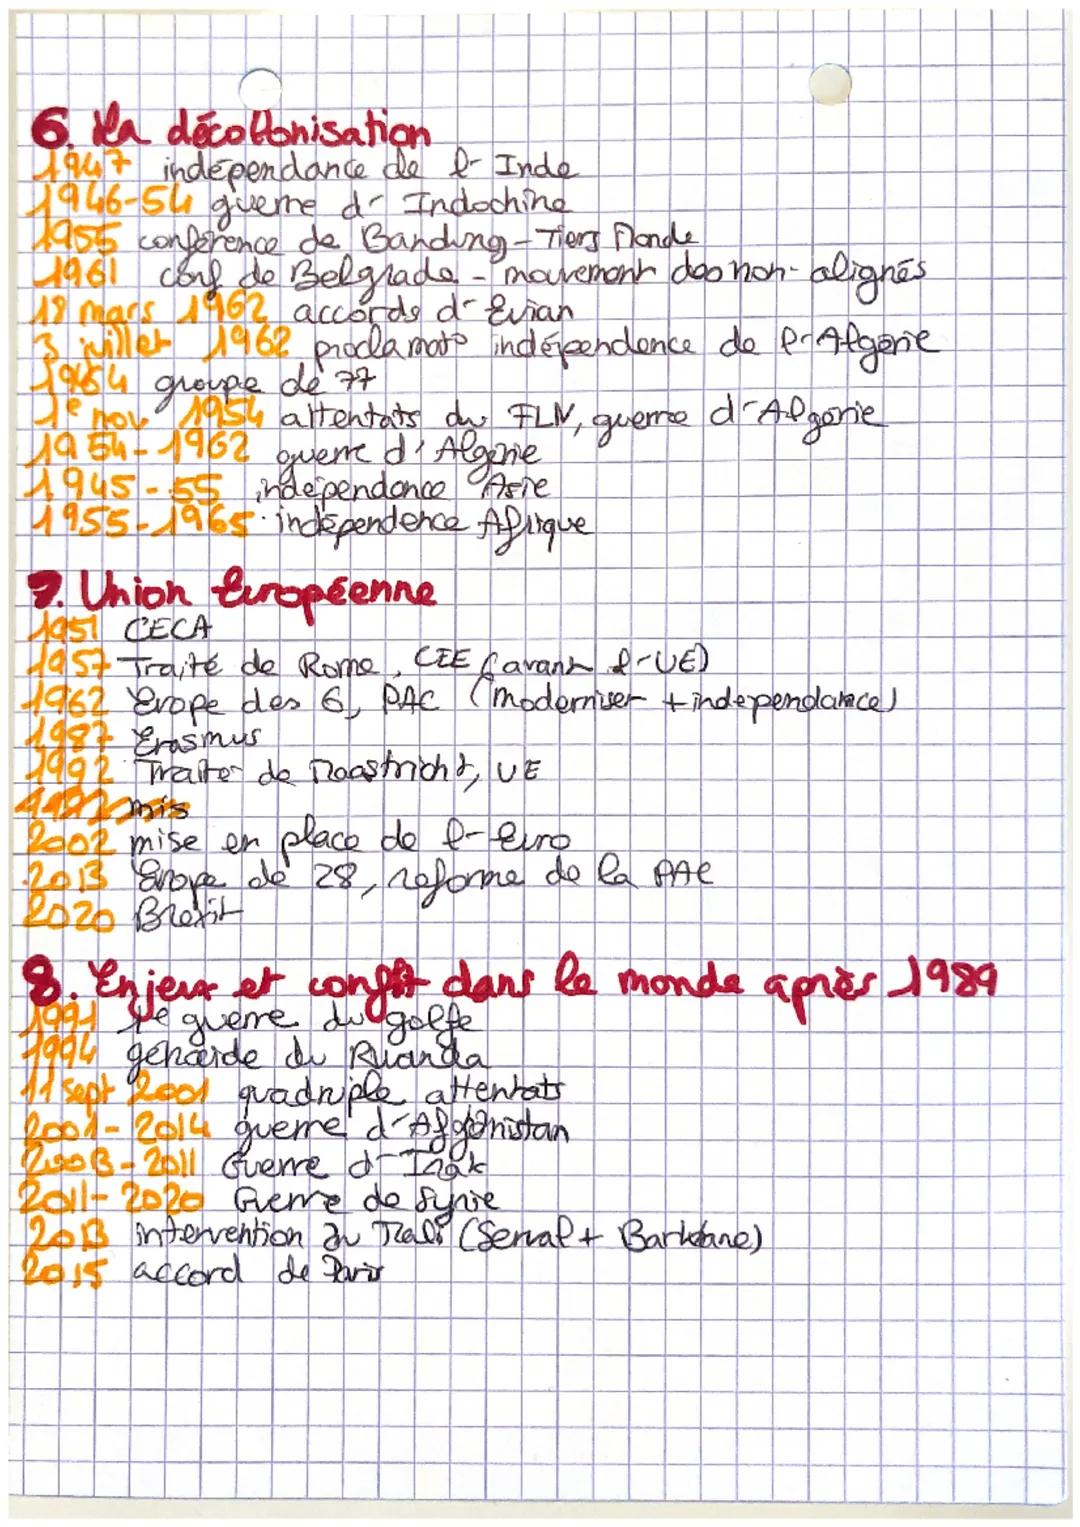 6. La décollonisation
1947 indépendance de l'Inde
1946-54 guerre d'Indochine
1955 conférence de Bandung - Tiers Monde
1961 conf de Belgrade - mouvement des non-alignés
18 mars 1962 accords d'Evian
3 juillet 1962 proclamat° indépendence de l'Algérie
groupe de 77
1e nov 1954 attentats du FLN, guerre d'Algérie
1954-1962 guerre d'Algérie
1945-55 indépendance Asie
1955-1965 indépendence Afrique
7. Union Européenne
1951 CECA
1957 Traité de Rome, CEE (avant l'UE)
1962 Erope des 6, PAC (moderniser + independance)
1987 Erasmus
1992 Traiter de Maastricht, UE
mis
2002 mise en place de l'Euro
2013 Erope de 28, reforme de la PAC
2020 Brexit
8. Enjeux et conflit dans le monde après 1989
1991 1e guerre du golfe
1994 génocide du Ruanda
11 sept 2001 quadriple attentats
2001-2014 guerre d'Afganistan
2003-2011 Guerre d'Irak
2011-2020 Guerre de Syrie
2013 intervention au Mali (Serval + Barkhane)
2015 accord de Paris